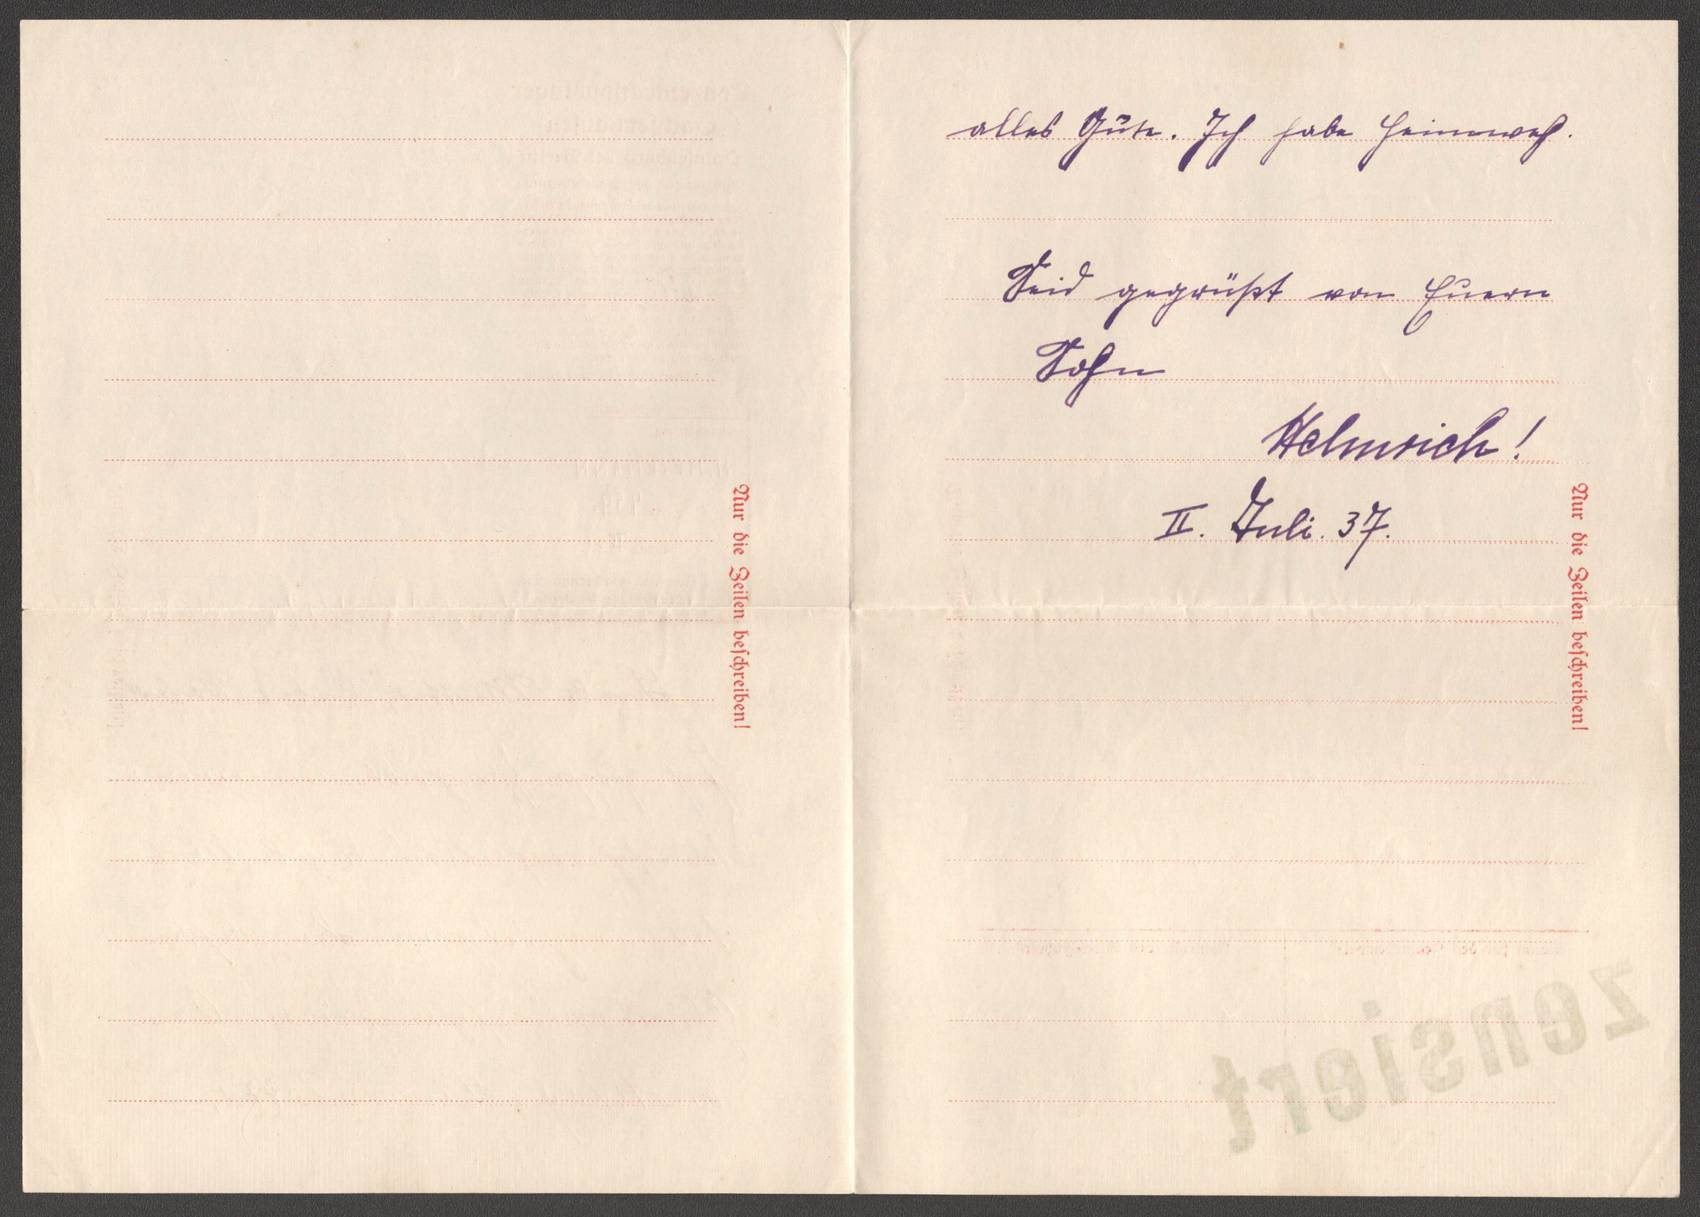 alles Gute. Ich habe Heimweh.
Seid gegrüßt von Euern
Sohn
Helmrich!
II. Juli. 37.
Nur die Zeilen beschreiben!
Nur die Zeilen beschreiben!
zensiert